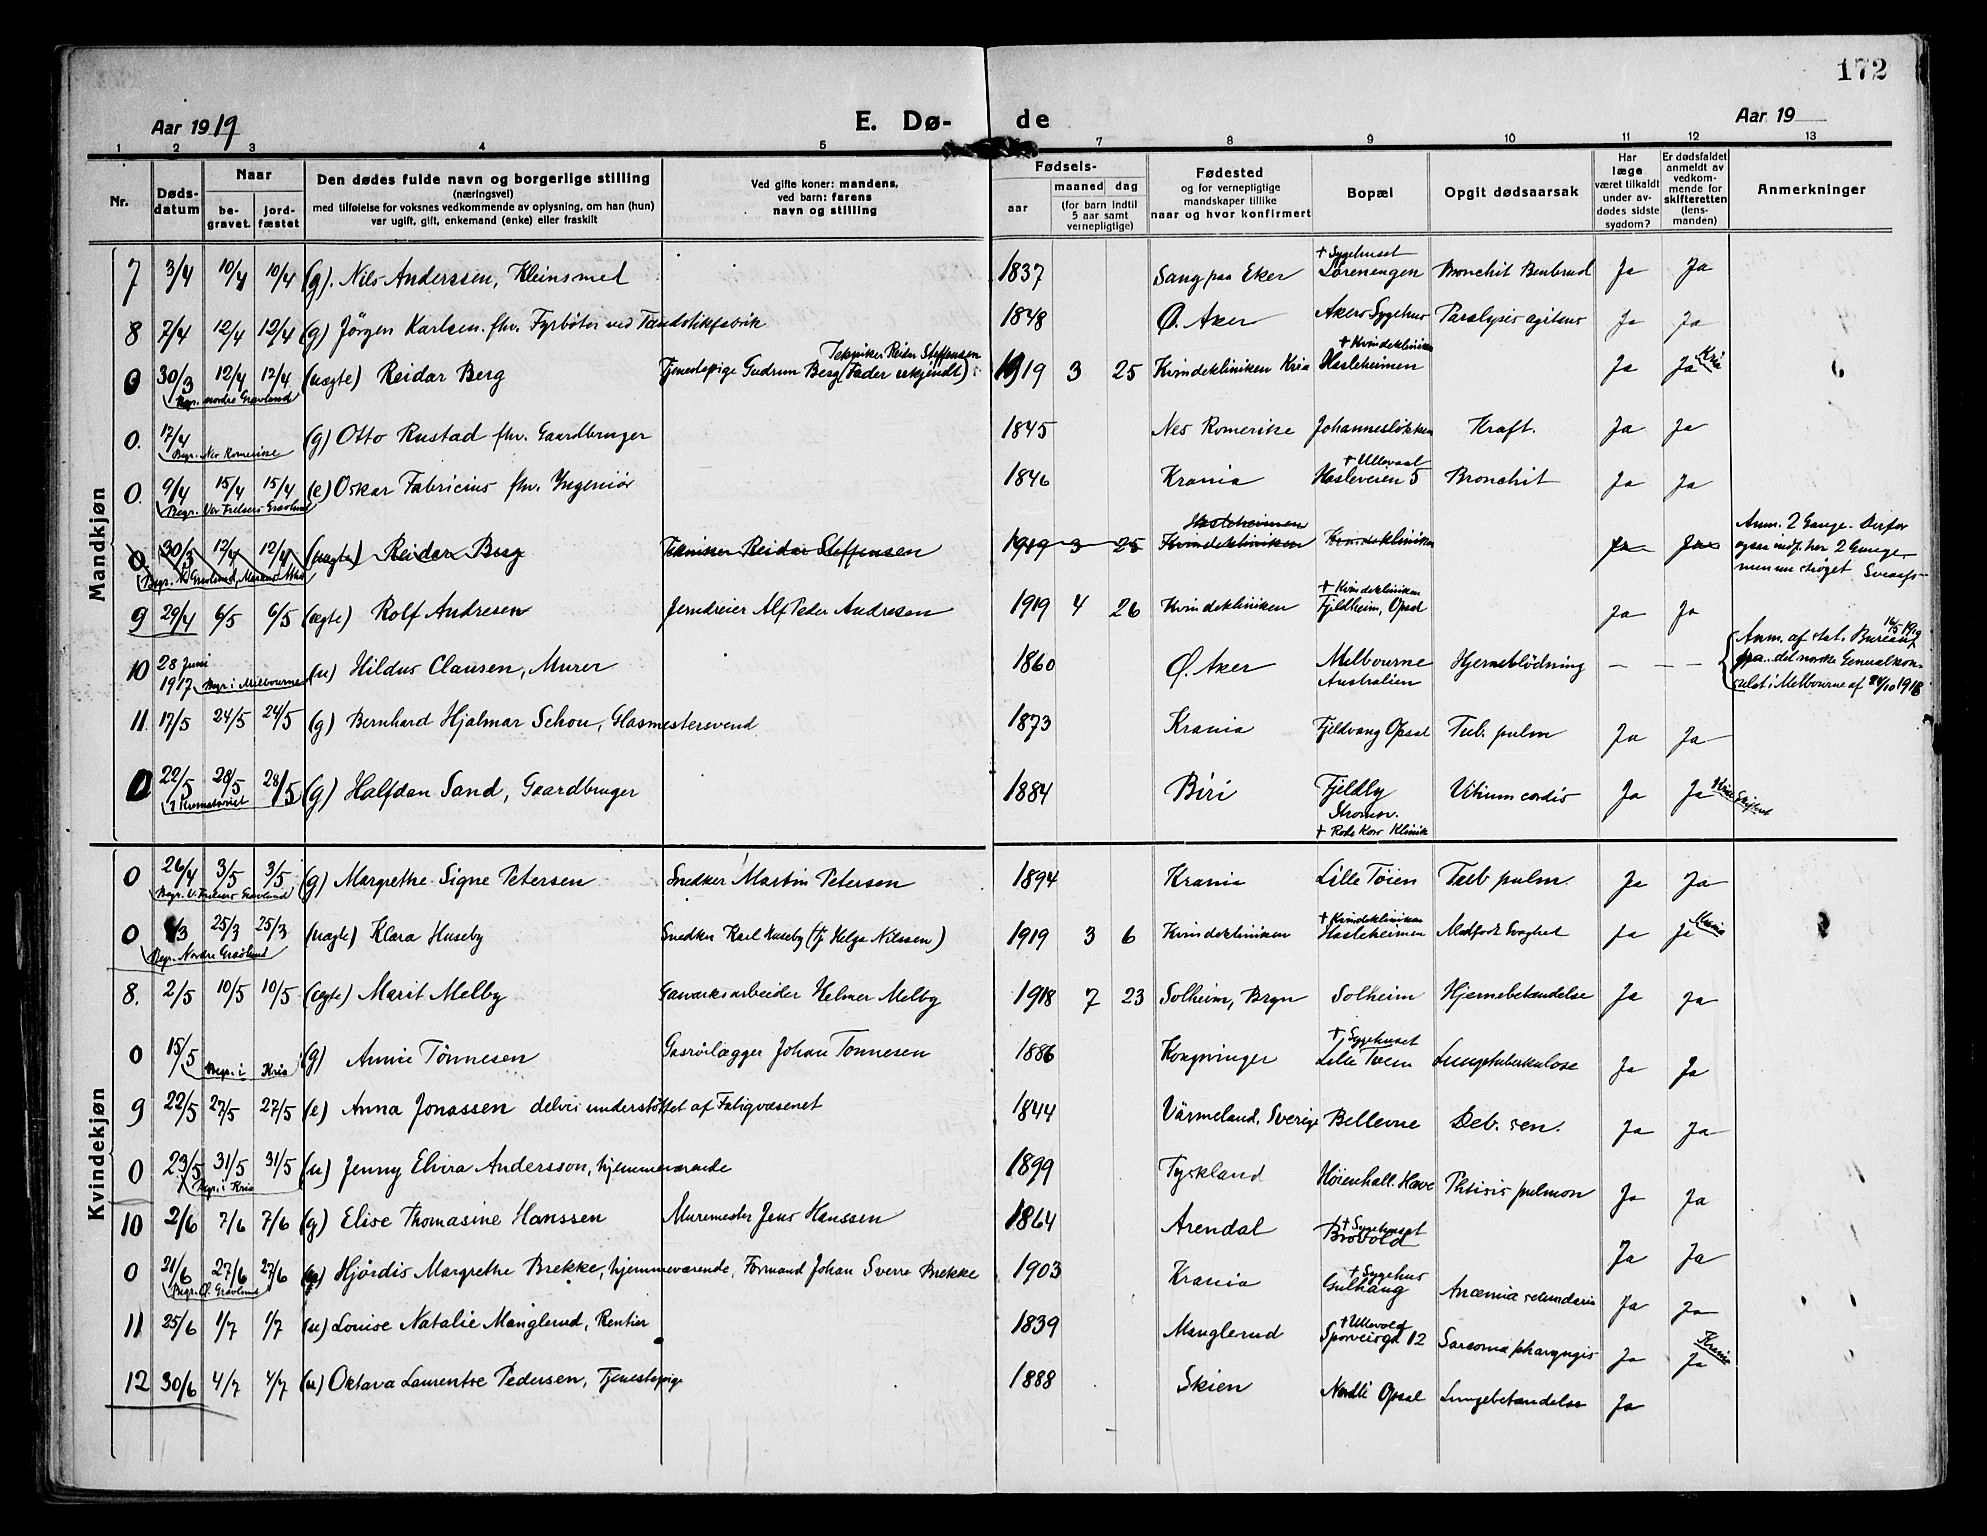 172
Aar 1919 E. Dø- de Aar 19
1 2 3 4 5 7 8 9 10 11 12 13
Nr. Døds-datum Naar be-gravet. jord-fæstet Den dødes fulde navn og borgerlige stilling (næringsvei) med tilføielse for voksnes vedkommende av oplysning, om han (hun) var ugift, gift, enkemand (enke) eller fraskilt Ved gifte koner: mandens, ved barn: farens navn og stilling Fødsels- aar maaned dag (for barn indtil 5 aar samt vernepligtige) Fødested og for vernepligtige mandskaper tillike naar og hvor konfirmert Bopæl Opgit dødsaarsak Har læge været tilkaldt under av-dødes sidste sygdom? Er dødsfaldet anmeldt av vedkom-mende for skifteretten (lens-manden) Anmerkninger
Mandkjøn
7 3/4 10/4 10/4 (g). Nils Anderssen, Kleinsmed 1837 Sang paa Eker + Sygehuset Lørenengen Bronchit Benbrud Ja Ja
8 7/4 12/4 12/4 (g) Jörgen Karlsen. fhv. Fyrböter ved Tændstikfabrik 1848 Ø. Aker Akers Sygehus Paralysis agitans Ja Ja
0 30/3 12/4 12/4 (uægte) Reidar Berg Tjenestepige Gudrun Berg (Tekniker Reidar Steffensen Fader erkjendt) 1919 3 25 Kvindekliniken Kria + Kvindekliniken Hasleheimen Ja Ja Kria
Begr. nordre Gravlund
0. 17/4 (g) Otto Rustad fhv. Gaardbruger 1845 Nes Romerike Johannesløkken Kræft. Ja Ja
Begr. Nes Romerike
0. 9/4 15/4 15/4 (e) Oskar Fabricius fhv. Ingeniör 1846 Krania + Ullevaal Hasleveien 5 Bronchit Ja Ja
Begr. Vor Frelsers Gravlund
0. 30/3 12/4 12/4 (uægte) Reidar Berg Tekniker Reidar Steffensen 1919 3 25 Hasleheimen Kvindekliniken Kvindekliniken Ja Ja Anm. 2 Gange. Derfor
ogsaa indf. her 2 Gange
9 29/4 6/5 6/5 (ægte) Rolf Andresen Jerndreier Alf Peder Andresen 1919 4 26 Kvindekliniken + Kvindekliniken Fjeldheim, Opsal Ja Ja
10 28 Juni 1917 Begr. i Melbourne (u) Hildus Clausen, Murer 1860 Ø. Aker Melbourne Australien Hjerneblödning — — — Anm. af stat. Bureau 16/5 1919
fra det norske Generalkon-
sulat i Melbourne af 24/10 1918
11. 17/5 24/5 24/5 (g) Bernhard Hjalmar Schou, Glasmestersvend 1873 Krania Fjeldvang Opsal Tub. pulm Ja Ja
0 22/5 28/5 28/5 (g) Halfdan Sand, Gaardbruger 1884 Biri Fjeldby Strömsv. + Røde Kors Klinik Vitium cordis Ja Ja Kria Skifteret
I Krematoriet
Kvindekjøn
0 26/4 3/5 3/5 (g) Margrethe Signe Petersen Snedker Martin Petersen 1894 Krania Lille Töien Tub pulm. Ja Ja
Begr. V. Frelsers Gravlund
0 /3 25/3 25/3 (uægte) Klara Huseby Snedker Karl Huseby (Tj Helga Nilssen) 1919 3 6 Kvindekliniken + Kvindekliniken Hasleheimen Medfødt Svaghet Ja Ja Krania
Begr. Nordre Gravlund
8. 2/5 10/5 10/5 (ægte) Marit Melby Gasværksarbeider Helmer Melby 1918 7 23 Solheim, Bryn Solheim Hjernebetændelse Ja Ja
0 15/5 Begr. i Kria (g) Annie Tönnesen Gasrörlægger Johan Tönnesen 1886 Kongsvinger + Sygehuset Lille Töien Lungetuberkulose Ja Ja
9 22/5 27/5 27/5 (e) Anna Jonassen delvis understöttet af Fatigvæsenet 1844 Värmeland, Sverige Bellevue Deb. sen. Ja Ja
0 23/5 31/5 31/5 (u) Jenny Elvira Andersson, hjemmeværende 1899 Tyskland Høienhall. Have Phtisis pulmon Ja Ja
Begr. i Kria
10 2/6 7/6 7/6 (g) Elise Thomasine Hanssen Muremester Jens Hanssen 1864 Arendal + Sygehuset Brovold Ja Ja
0 21/6 27/6 27/6 Hjördis Margrethe Brekke, hjemmeværende, Formand Johan Sverre Brekke 1903 Krania + Sygehus Gulhaug Anæmia sekundaria Ja Ja
Begr. Ø. Gravlund
11 25/6 1/7 1/7 (u) Louise Natalie Manglerud, Rentier 1839 Manglerud + Ullevold Sporveisgt 12 Sarcoma pharyngis Ja Ja Krania
12 30/6 4/7 4/7 (u) Oktava Laurentse Pedersen, Tjenestepige 1888 Skien Nordli Opsal Lungebetændelse Ja